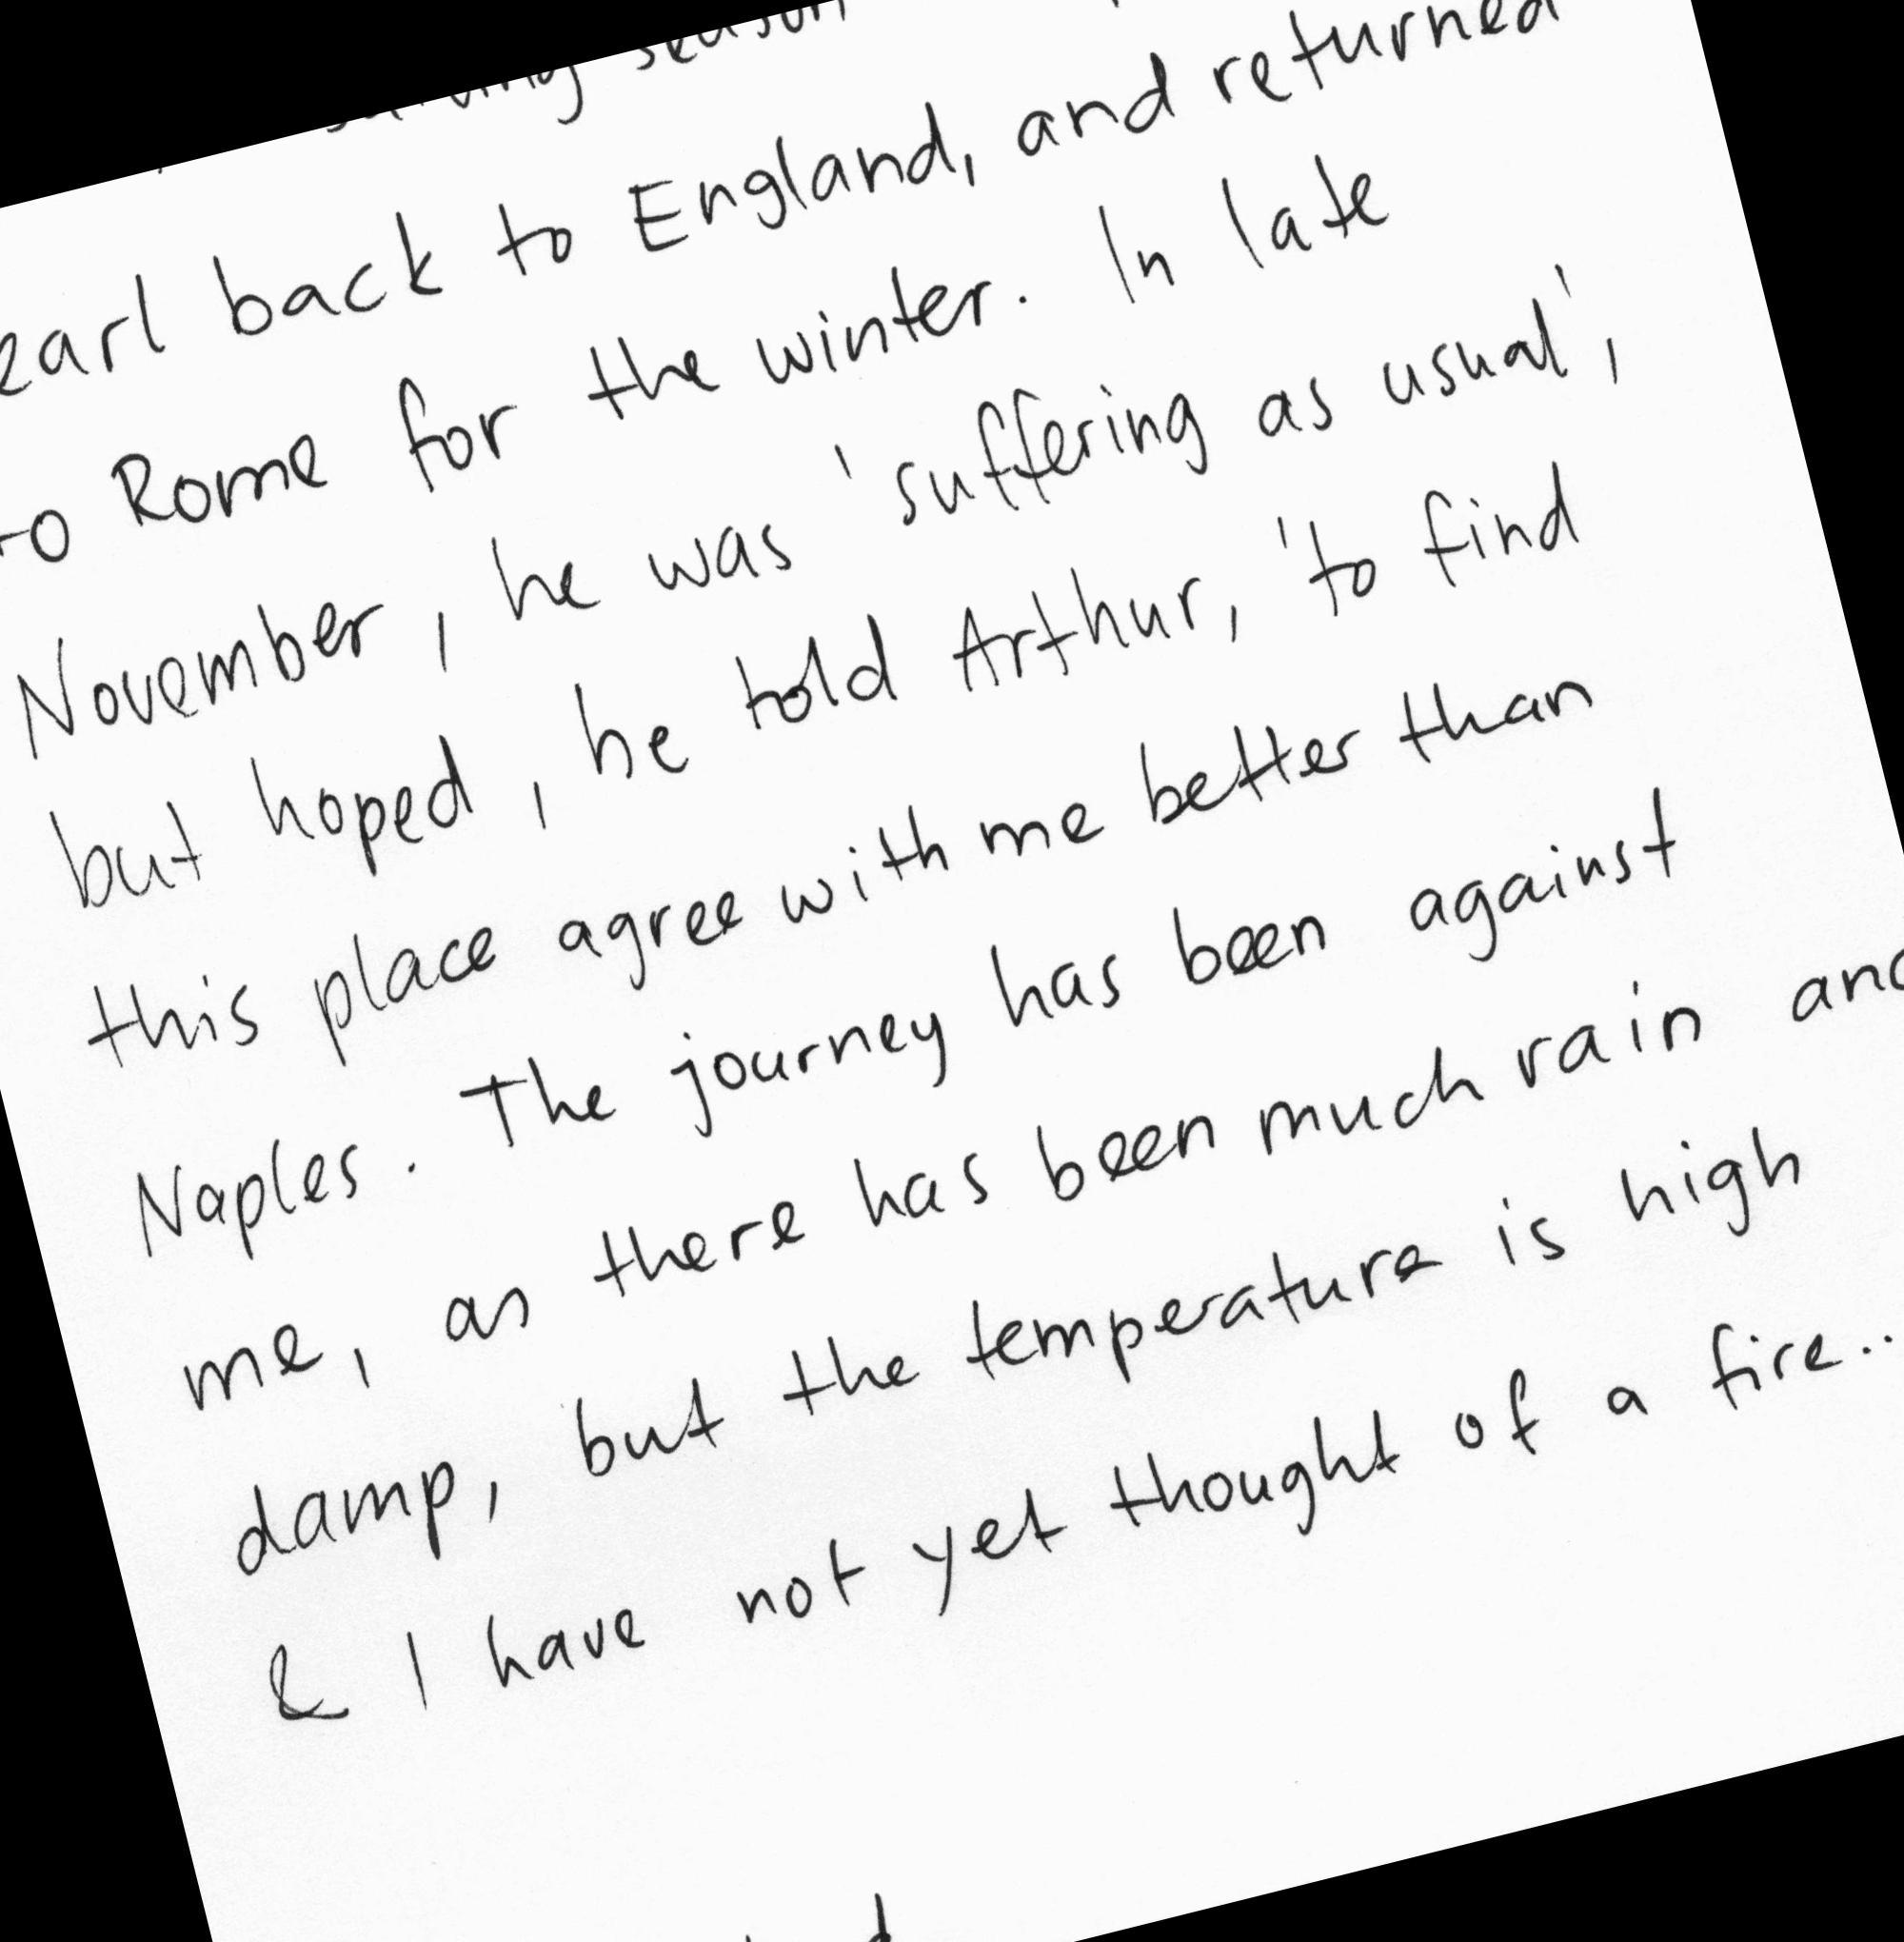 season
earl back to England, and returned
to Rome for the winter. In late
November, he was 'suffering as usual',
but hoped, he told Arthur, 'to find
this place agree with me better than
Naples. The journey has been against
me, as there has been much rain and
damp, but the temperature is high
& I have not yet thought of a fire..